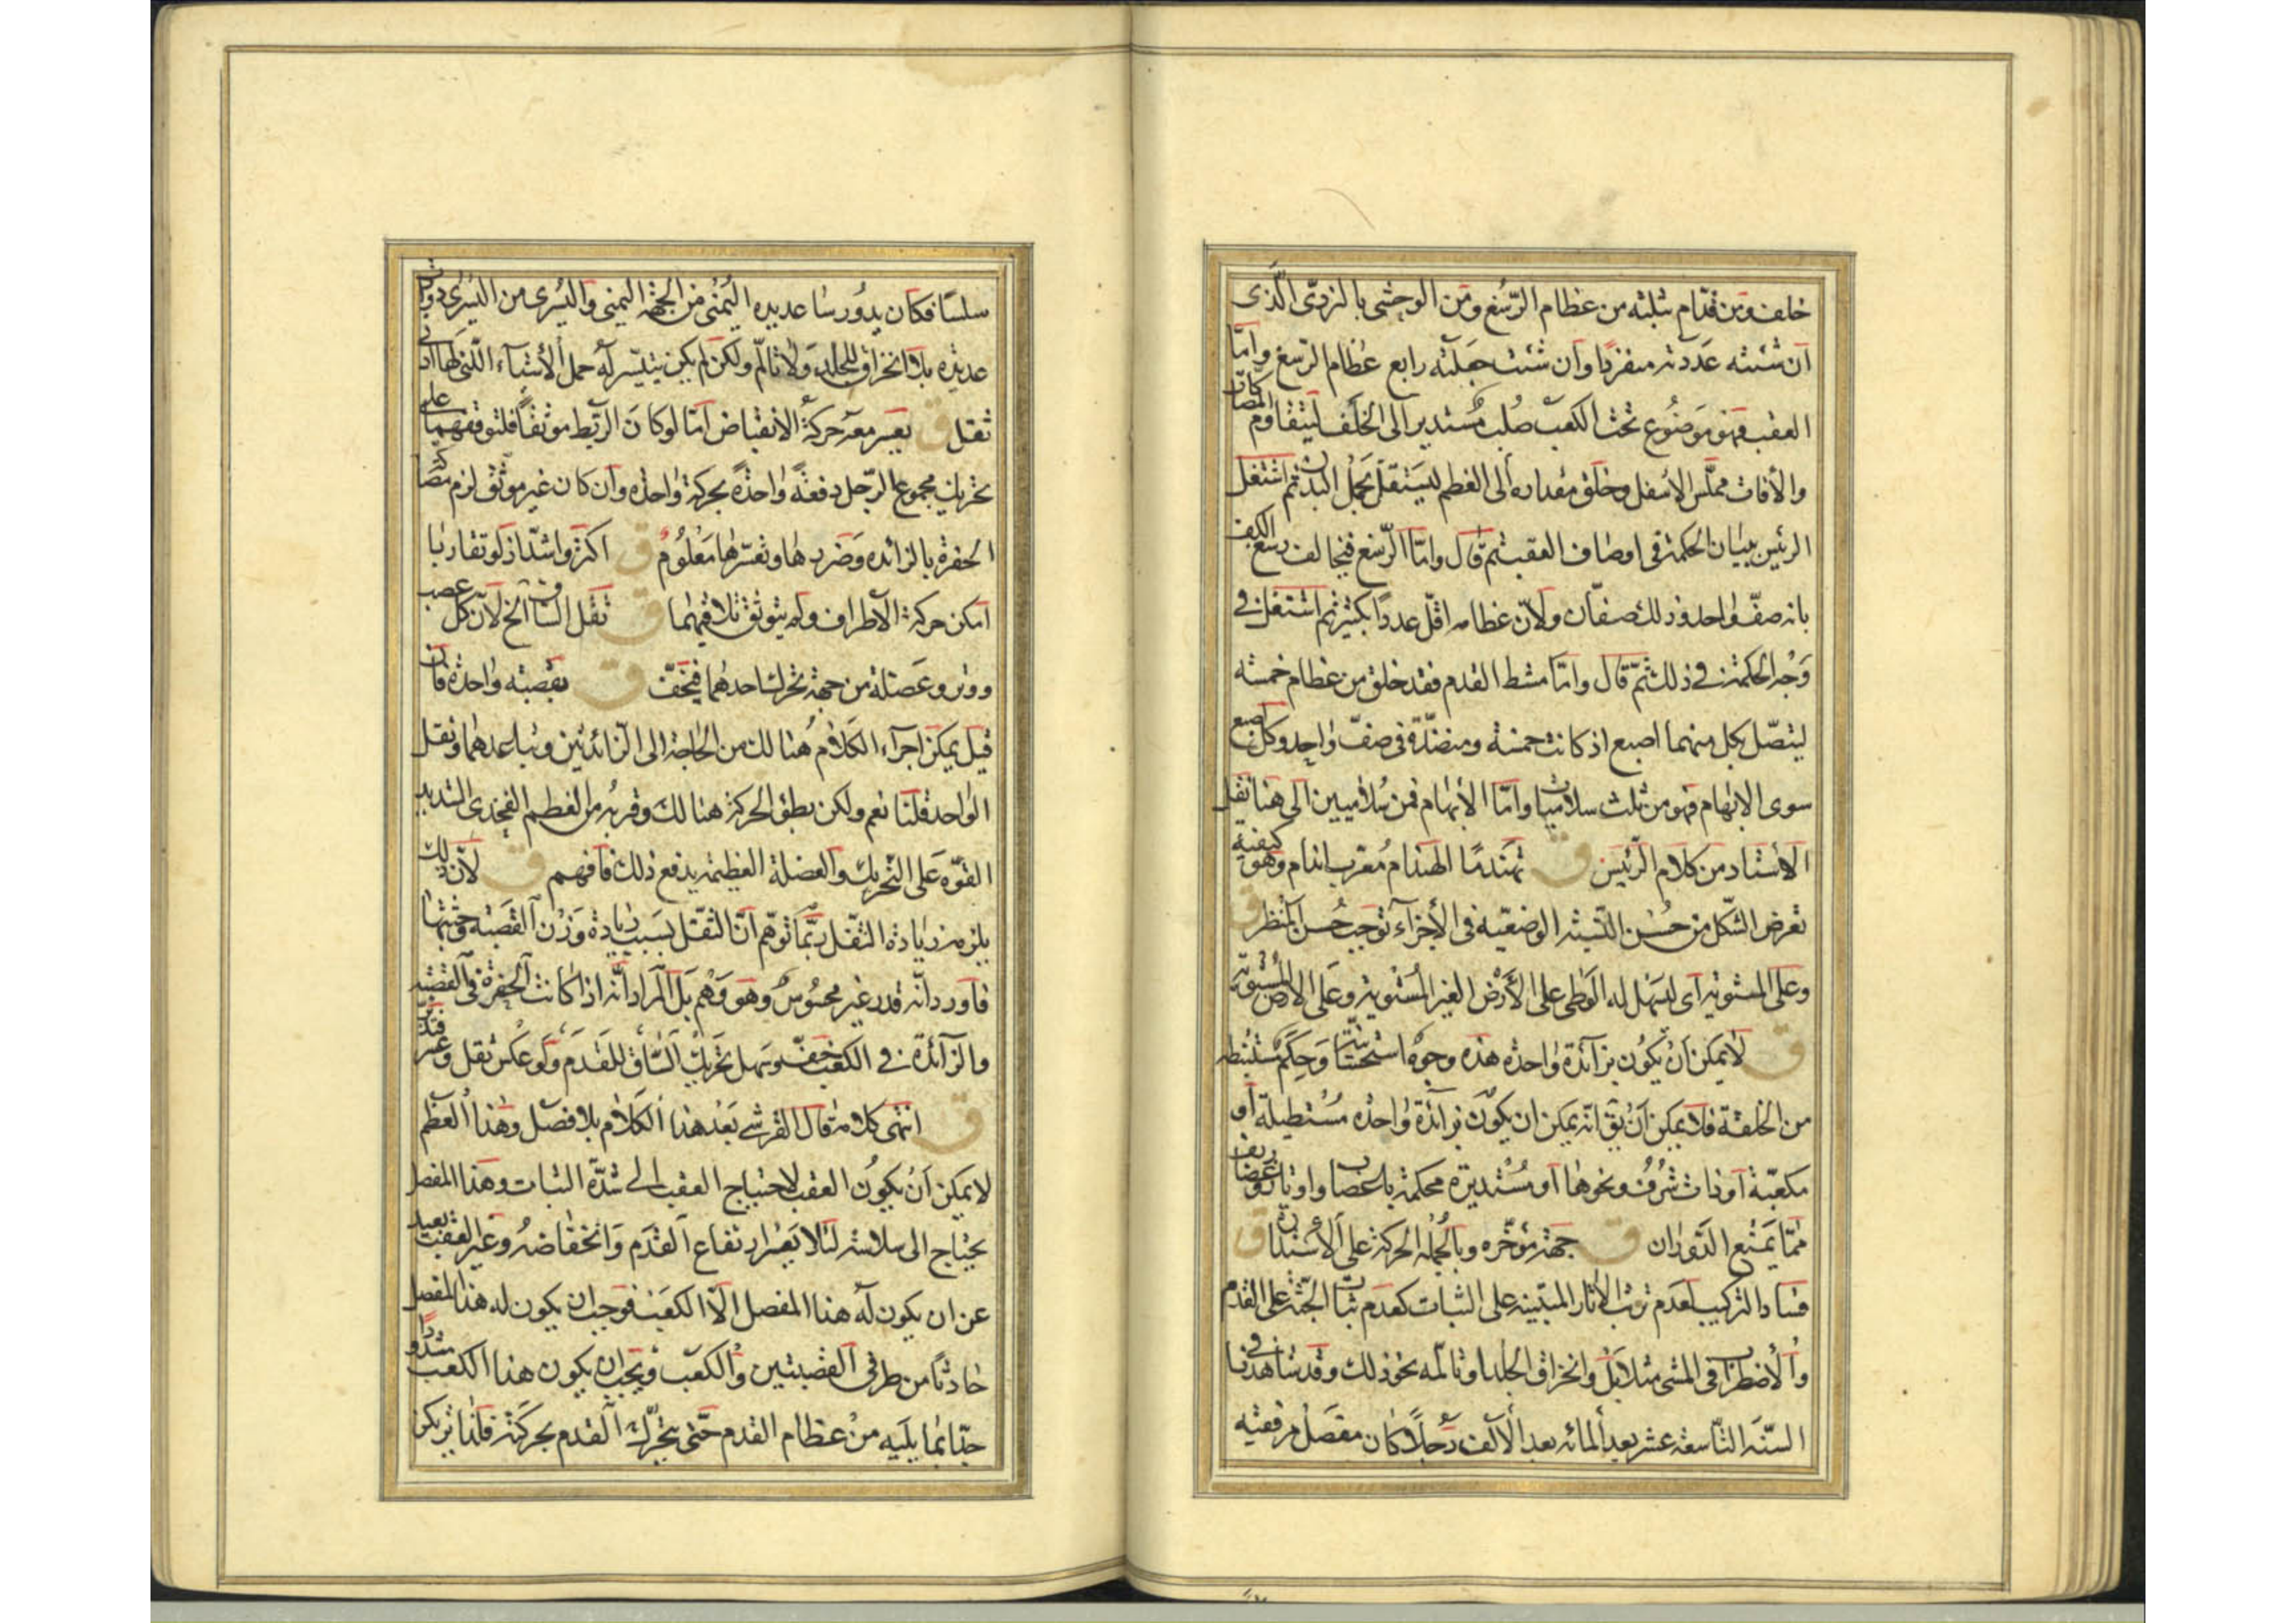 خلف ومن قدّام بثلثه من عظام الرّسغ ومن الوحشى بالنردىّ الّذى
ان شئته عددته منفردا وان شئت جعلته رابع عظام الرّسغ وامّا
العقب فهو موضوع تحت الكعب صُلب مُستدير الى الخَلف ليتقاوم المصاكّات
والأفات مملّس الاسفل وخلق مقداره الى العظم ليستقلّ بحمل البدن ثم اشتغل
الرئيس ببيان الحكمة فى اوصاف العقب ثم قال وامّا الرّسغ فيخالف رسغ الكفّ
بانه صفّ واحد وذلك صفّان ولانّ عظامه اقلّ عدداً بكثير ثم اشتغل فى
وَجْه الحكمة فى ذلك ثمّ قال وامّا مشط القدم فقد خلق من عظام خمسه
ليتصّل بكل منهما اصبع اذ كانت خمسة ومنضّدة فى صفّ واحد وكل اصبع
سوى الابهام فهو من ثلث سلاميات وامّا الأبهام فمن سُلاميين الى هنا نقل
الاستاد من كلام الرّئيس ق تهندمًا الهندام مُعرب اندام وهو كيفية
تعرض الشّكل من حُسْن النّسبة الوضعيّة فى الأجزآء توجب حُسن المنظر ق
وعلى المستويه اى ليسهل له الوطى على الأرْض الغير المُسْتوية وعَلى الارض المُستوية
ق لايمكن اَنْ يكُون بزآئدة واحدة هذه وجوه استحسانيّة وَحِكَم مستنبطه
من الخلقة فلا يمكن اَنْ يقَ انّه يمكن ان يكون بزآئدة واحدة مُسْتطيلة او
مكعّبة او ذات شُرف ونحوها او مُسْتديرة محكمة باعصاب واوتار وغضاريف
ممّا يَمْنع الدَوَران ق جهة مؤخّره وبالجُمله الحركة على الاستدارة ق
فساد التركيب لعدم ترتب الأثار المبتنيه على الثبات كعدم ثبات الجثّة على القدم
والأضطراب فى المشى مثلا بَل وانخراق الجلد او تالمه نحو ذلك وقد شاهدنا فى
السّنَه التّاسعة عشر بعد المائه بعد الألف رَجُلاً كان مفصَل مرفقيه
سلسًا فكان يدُور ساعد يده اليُمْنى من الجهة اليمنى واليُسرى من اليسرى دوران
عديده بلا انخراق للجلد وَلا تالّم ولكن لم يكن يتيسّر له حمل الأشياء الّتى لها ادنى
ثقل ق يعسر معه حركة الانقباض امّا لو كان الرّبط موثقاً فلتوقفهما على
تحريك مجموع الرّجل دفعةً واحدةً بحركة واحدة وان كان غير موثق لزم مصاكّة
الحفرة بالزائده وَضَررها وتعسّرها مَعْلُومٌ ق اكثر واشدّ اذ لو تقاربا
امكن حركة الأطراف وله يتوثق تلاقيهما ق ثقل السّاق الخ لانّ كل عصب
ووتر وعَضَلة من جهة تحرك احدهما فيخفّ ق بقصبته واحدة فان
قيل يمكن اجرآء الكَلام هُنالك من الحاجة الى الزائدتين وتباعدهما وثقل
الواحد قلنا نعم ولكن بطؤ الحركة هنالك وقربهُ من العظم الفخذى الشديد
القوّه عَلى التّحريك والعضلة العظيمة يدفع ذلك فافهم ق لانّ ذلك
يلزمه زيادة الثقل ربّما توهّم انَّ الثقل بسَبب زيادة وَزْن القصَبة وجُثّتها
فاورد انّه قدر غير محسُوسٌ وهو وَهْم بَل المراد انَّه اذا كانت الحفرة فى القصبة
والزآئدة فى الكعب خفّ وسَهل تحريك السّاق للقدَم وَلَو عكس ثقل وعسر فتدبّر
ق انتهى كلامه قال القرشى بَعْد هذا الكَلام بلا فصل وهٰذا العَظم
لا يمكن اَنْ يكُون العقب لاحتياج العقب الى شدّة الثبات وهذا المفصل
يحتاج الى سلاسة لئلا يَعْسر ارتفاع القدَم وَانخفاضهُ وغير العقب بعيد
عن ان يكون له هذا المفصل الّا الكعب فوجب ان يكون له هذا المفصل
حادثاً من طرفى القصبتين وَالكعب ويجب ان يكون هذا الكعب مشدودًا
جدّا بما يليه من عظام القدم حتّى يتحرّك القدم بحركته فلذا ثم يكن